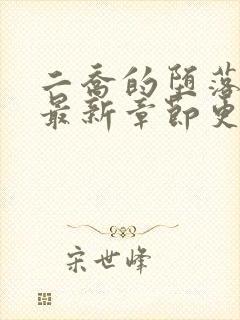 二乔的堕落
最新章节更
宋世峰